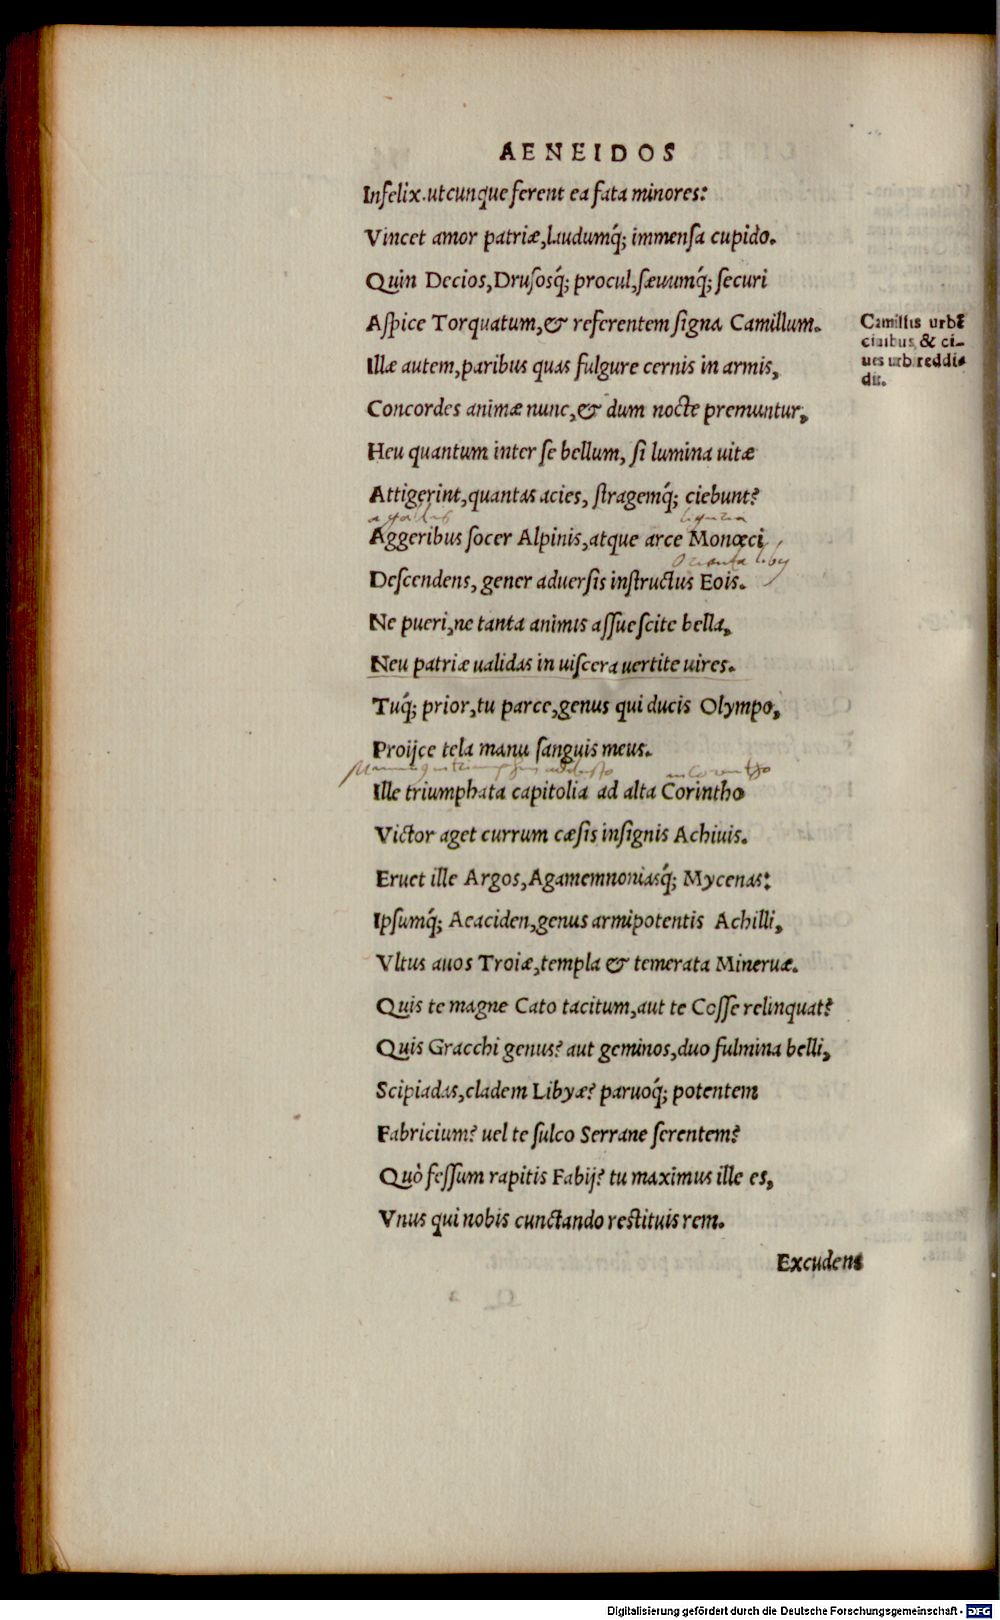 AENEIDOS
Infelix. utcunque ferent ea fata minores:
Vincet amor patriæ, laudumq́; immensa cupido.
Quin Decios, Drusosq́; procul, sæuumq́; securi
Aspice Torquatum, & referentem signa Camillum.
Camillus urbē
ciuibus, & ci-
ues urb. reddi-
dit.
Illæ autem, paribus quas fulgure cernis in armis,
Concordes animæ nunc, & dum nocte premuntur,
Heu quantum inter se bellum, si lumina uitæ
Attigerint, quantas acies, stragemq́; ciebunt?
Aggeribus socer Alpinis, atque arce Monœci
Descendens, gener aduersis instructus Eois.
Ne pueri, ne tanta animis assuescite bella,
Neu patriæ ualidas in uiscera uertite uires.
Tuq́; prior, tu parce, genus qui ducis Olympo,
Proijce tela manu sanguis meus.
Ille triumphata capitolia ad alta Corintho
Victor aget currum cæsis insignis Achiuis.
Eruet ille Argos, Agamemnoniasq́; Mycenas:
Ipsumq́; Aeaciden, genus armipotentis Achilli,
Vltus auos Troiæ, templa & temerata Mineruæ.
Quis te magne Cato tacitum, aut te Cosse relinquat?
Quis Gracchi genus? aut geminos, duo fulmina belli,
Scipiadas, cladem Libyæ? paruoq́; potentem
Fabricium? uel te sulco Serrane serentem?
Quò fessum rapitis Fabij? tu maximus ille es,
Vnus qui nobis cunctando restituis rem.
Excudent
Digitalisierung gefördert durch die Deutsche Forschungsgemeinschaft - DFG